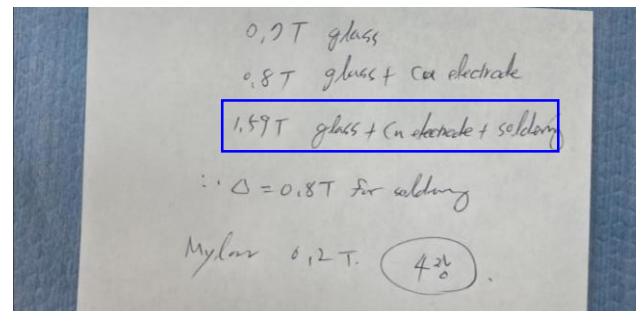 0.7T glass
0.8T glass + Cu electrode
1.59T glass + Cu electrode + soldering
∴ Δ = 0.8T for soldering
Mylar 0.2T. 4장.